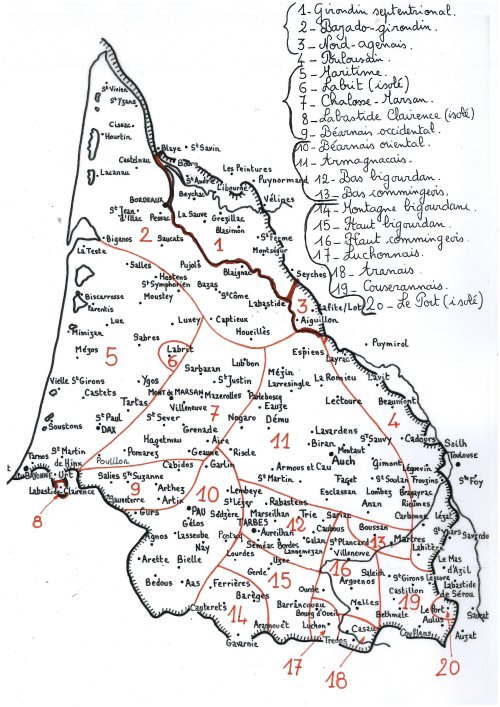 1_ Girondin septentrional.
2_ Bazado-girondin.
3_ Nord-agenais.
4_ Toulousain.
5_ Maritime.
6_ Labrit (isolé)
7_ Chalosse-Marsan.
8_ Labastide Clairence (isolé)
9_ Béarnais occidental.
10_ Béarnais oriental.
11_ Armagnacais.
12_ Bas bigourdan.
13_ Bas commingeois.
14_ Montagne bigourdane
15_ Haut bigourdan.
16_ Haut commingeois
17_ Luchonnais.
18_ Aranais.
19_ Couserannais.
20_ Le Port (isolé)
St Vivien
St Yzans
Cissac
Hourtin
Castelnau
Blaye
St Savin
Bourg
Les Peintures
Lacanau
St André
Libourne
Puynormand
Beychac
Vélines
BORDEAUX
St Jean d'Illac
Pessac
La Sauve
Grézillac
Blasimon
1
2
Biganos
Saucats
St Ferme
Montségur
La Teste
Salles
Pujols
Hostens
Blaignac
Seyches
St Symphorien
Bazas
Biscarrosse
Moustey
St Côme
Labastide
3
Lafite/Lot
Parentis
Aiguillon
Luc
Luxey
Captieux
Mimizan
Sabres
Houeillès
Puymirol
Mézos
5
Labrit
6
Espiens
Layrac
Sarbazan
Lubbon
Mézin
Lavit
Vielle St Girons
Ygos
St Justin
Larressingle
La Romieu
Castets
MONT de MARSAN
Mazerolles
Parlebosc
Lectoure
Beaumont
Tartas
Villeneuve
7
Eauze
4
St Paul
St Sever
Nogaro
Dému
Soustons
DAX
Grenade
11
Lavardens
Cadours
Hagetmau
Aire
Biran
St Sauvy
Sailh
St Martin de Hinx
Pomarez
Geaune
Riscle
Montaut
Toulouse
Tarnos
Pouillon
Auch
Gimont
BAYONNE
Urt
Cabidos
Garlin
Armous et Cau
St Foy
Labastide Clairence
Salies
St Suzanne
St Martin
Faget
St Soulan
8
9
Arthez
10
Lembeye
Esclassan
Lombez
Sauveterre
Artix
St Léger
Rabastens
Anan
Rieumes
Gurs
PAU
Sédzère
Marseilhan
Trie
Sariac
Carbonne
Gélos
TARBES
12
Boussan
Agnos
Lasseube
Pontacq
Aureilhan
Galan
St Plancard
13
Martres
Nay
Séméac
Bordes
Villeneuve
Labitère
Arette
Bielle
Lourdes
Lannemezan
16
Le Mas d'Azil
Uzer
Saleich
St Girons
Lescure
Gerde
15
Argenos
Castillon
Labastide de Sérou
Bedous
Aas
Ferrières
Ourde
Barèges
Barrancoueu
Nelles
19
Le Port
Cauterets
14
Bourg d'Oueil
Bethmale
Aulus
Aragnouet
Luchon
Casau
Couflens
Auzat
Gavarnie
17
18
20